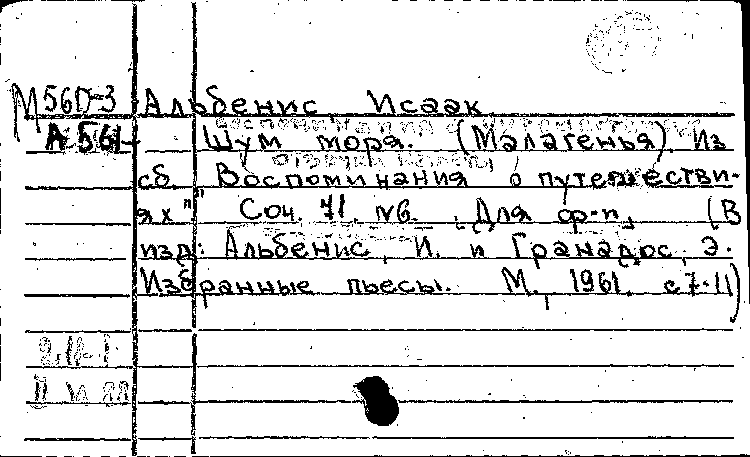 М560-3 Альбенис, Исаак
А 561 Шум моря. (Малагенья). Из
сб. "Воспоминания о путешестви-
ях" Соч. 71. №6. Для ф-п. (В
изд: Альбенис, И. и Гранадос, Э.
Избранные пьесы. М., 1961. с7-11)